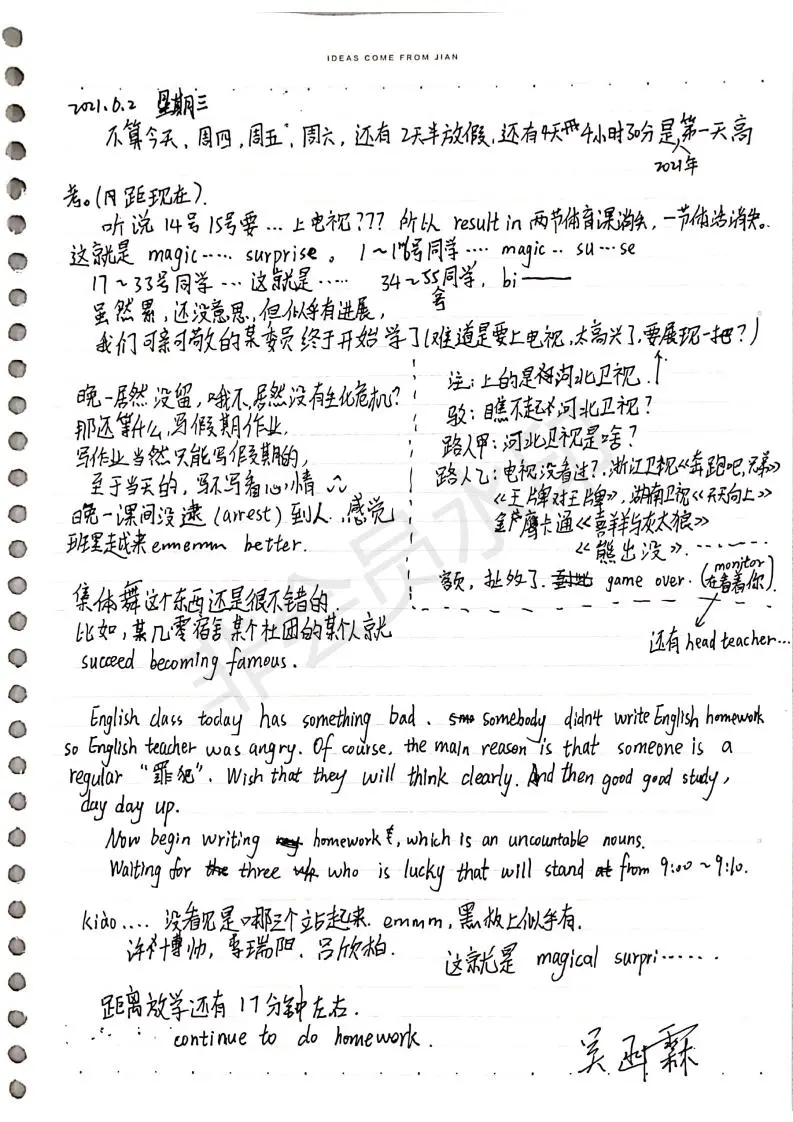 IDEAS COME FROM JIAN
2021.6.2 星期三
不算今天、周四,周五,周六,还有2天半放假,还有4天4小时30分是第一天高
2021年
考。(距现在).
听说14号15号要…上电视??? 所以 result in 两节体育课消失,一节体活消失。
这就是 magic····· surprise。 1~16号同学···· magic·· su···se
17~33号同学···这就是····· 34~55同学, bi——
号
虽然累,还没意思,但似乎有进展,
我们可亲可敬的某委员终于开始学了(难道是要上电视,太高兴了,要展现一把?)
晚一居然没留,哦不,居然没有生化危机?
那还等什么,写假期作业,
写作业当然只能写假期的,
至于当天的,写不写看心情
晚一课间没逮(arrest)到人.感觉
班里越来 emmmm better.
注:上的是河北卫视.
驳:瞧不起河北卫视?
路人甲:河北卫视是啥?
路人乙:电视没看过?,浙江卫视《奔跑吧,兄弟》
《王牌对王牌》,湖南卫视《天天向上》
金鹰卡通《喜羊与灰太狼》
《熊出没》········
额,扯多了. game over. (monitor
在看着你).
还有head teacher...
集体舞这个东西还是很不错的.
比如,某几零宿舍某个社团的某个人就
succeed becoming famous.
English class today has something bad. somebody didn't write English homework
so English teacher was angry. Of course, the main reason is that someone is a
regular "罪犯". Wish that they will think clearly. And then good good study,
day day up.
Now begin writing homework, which is an uncountable nouns.
Waiting for three who is lucky that will stand from 9:00~9:10.
kiào.... 没看见是哪三个站起来. emmm,黑板上似乎有.
许博帅,李瑞阳.吕欣柏.
这就是 magical surpri······
距离放学还有17分钟左右.
continue to do homework.
吴函霖
非会员水印